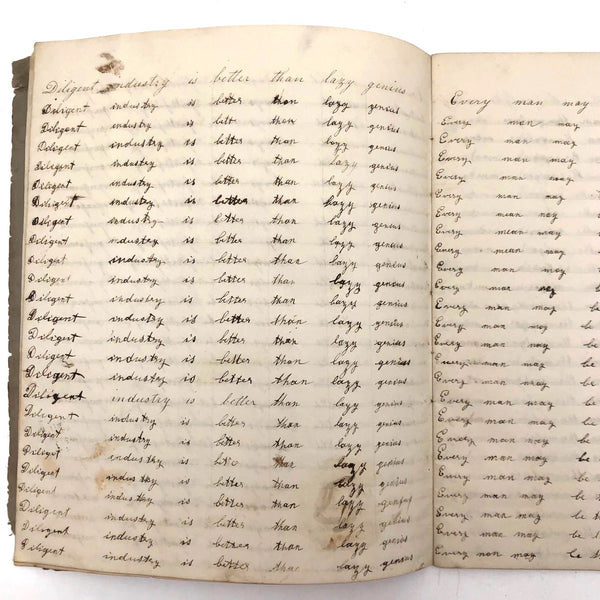 Diligent industry is better than lazy genius
Diligent industry is better than lazy genius
Diligent industry is bett than lazy genius
Diligent industry is better than lazy genius
Diligent industry is better than lazy genius
Diligent industry is better than lazy genius
Diligent industry is better than lazy genius
Diligent industry is btter than lazy genius
Diligent industry is better than lazy genius
Diligent industry is better than lazy genius
Diligent industry is better than lazy genius
Diligent industry is better than lazy genius
Diligent industry is better than lazy genius
Diligent industry is better than lazy genius
Diligent industry is better than lazy genius
Diligent industry is better than lazy genius
Diligent industry is better than lazy genius
Diligent industry is better than lazy genius
Diligent industry is better than lazy genius
Diligent industry is than lazy genius
Diligent industry is better than lazy genius
Diligent industry is better than lazy genius
Diligent industry is better than lazy genius
Diligent industry is better than lazy genius
Diligent industry is better than lazy genius
Every man may
Every man may
Every man may
Every man may
Every man may
Every man may
Every man may
Every man may
Every mean may
Every man may
Every man may
Every man may be
Every man may be
Every man may be
Every man may be
Every man may be
Every man may be
Every man may be
Every man may be
Every man may be
Every man may be
Every man may be
Every man may be
Every man may be
Every man may be